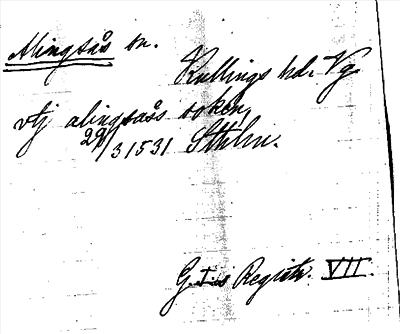 Alingsås sn.
Kullings hd. Vg
vtj alingsåss soken,
29/3 1531 Sthlm.
G. I:s Registr. VII.